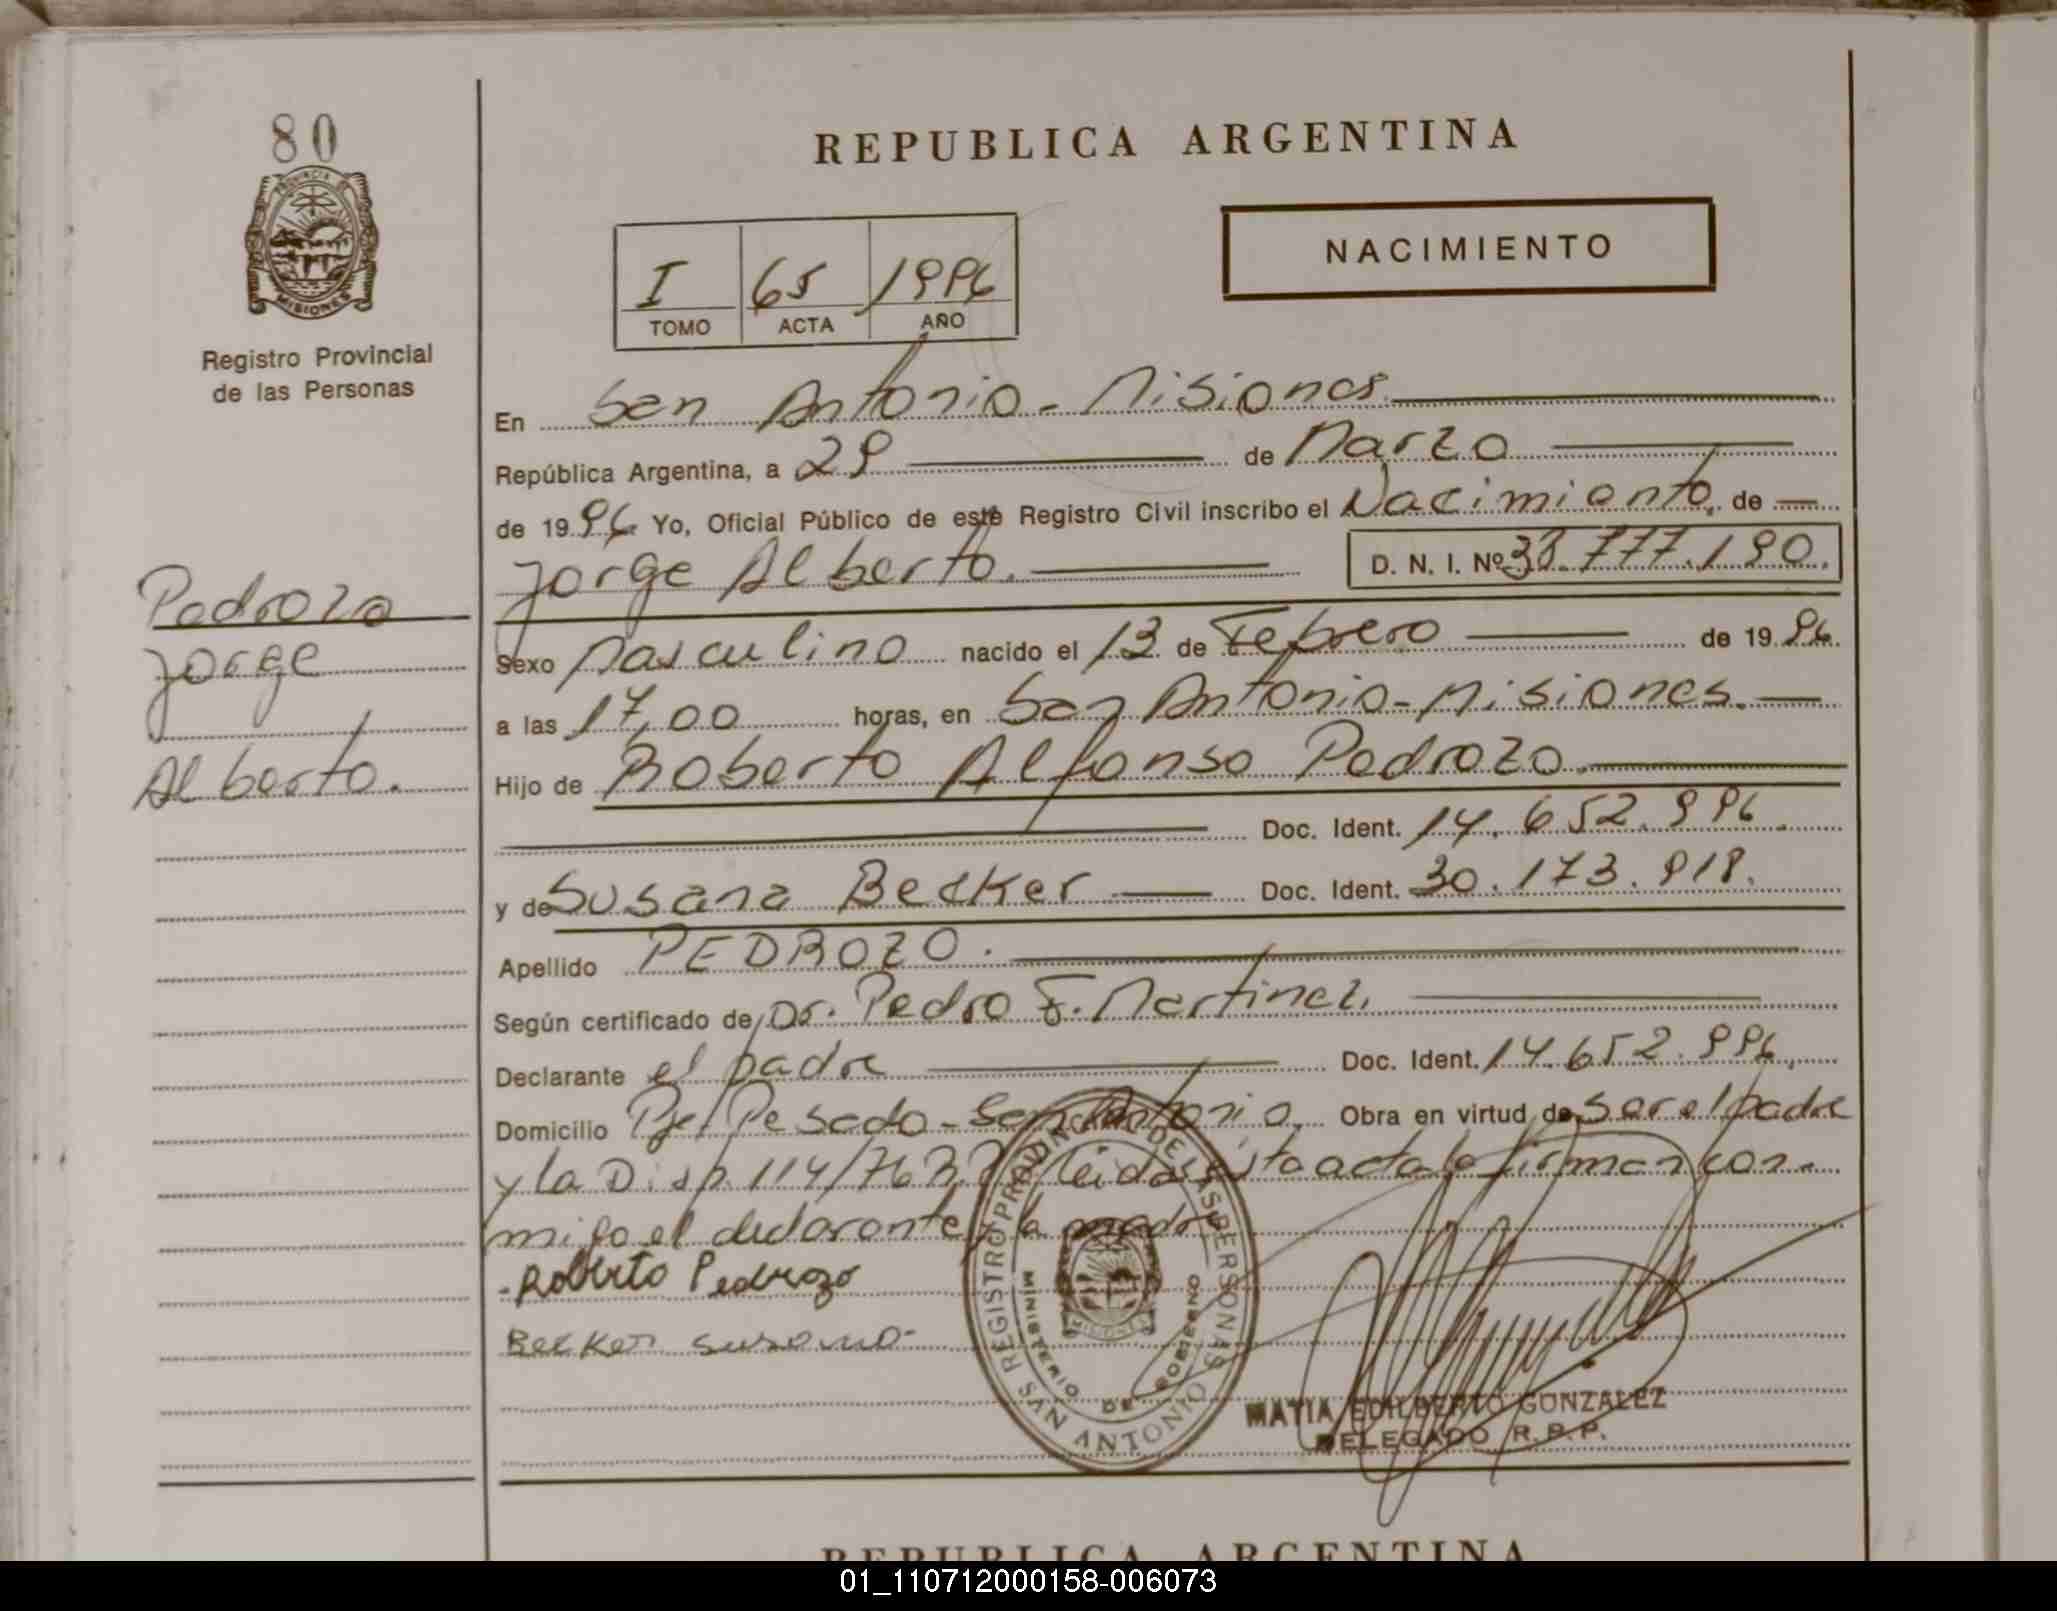 80
PROVINCIA DE
MISIONES
Registro Provincial
de las Personas
REPUBLICA ARGENTINA
NACIMIENTO
I 65 1996
TOMO ACTA AÑO
En San Antonio - Misiones
República Argentina, a 29 de Marzo
de 1996 Yo, Oficial Público de este Registro Civil inscribo el Nacimiento. de
Jorge Alberto. D. N. I. Nº 38.777.190.
Pedrozo
Jorge
Alberto.
Sexo Masculino nacido el 13 de Febrero de 1996.
a las 17,00 horas, en San Antonio - Misiones.
Hijo de Roberto Alfonso Pedrozo.
Doc. Ident. 14.652.996.
y de Susana Becker Doc. Ident. 30.173.918.
Apellido PEDROZO.
Según certificado de Dr. Pedro F. Martinez.
Declarante el padre Doc. Ident. 14.652.996.
Domicilio Pje/Pesado - San Antonio. Obra en virtud de ser el padre
y la Disp. 114/76 Leida ésta acta la firman con-
migo el declarante y la madre
- Roberto Pedrozo
Becker Susana -
REGISTRO PROVINCIAL DE LAS PERSONAS
SAN ANTONIO
MINISTERIO DE GOBIERNO
MISIONES
MATIA EDILBERTO GONZALEZ
DELEGADO R.P.P.
REPUBLICA ARGENTINA
01_110712000158-006073